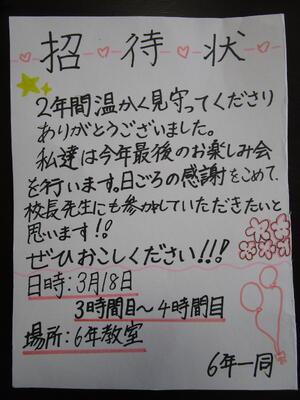 招待状
2年間温かく見守ってくださり
ありがとうございました。
私達は今年最後のお楽しみ会
を行います。日ごろの感謝をこめて、
校長先生にも参加していただきたいと
思います!!
ぜひおこしください!!!
日時:3月18日
3時間目～4時間目
場所:6年教室
6年一同